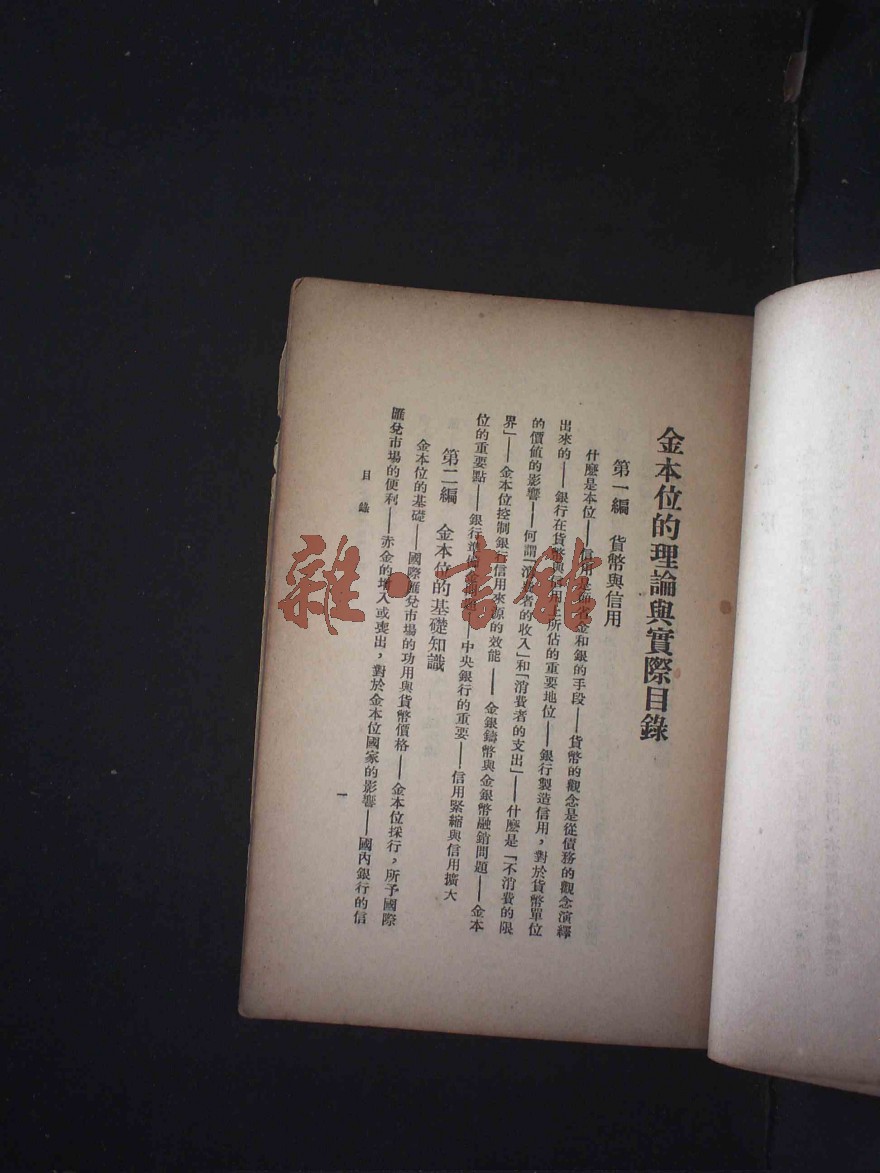 金本位的理論與實際目錄
第一編　貨幣與信用
什麼是本位——信用是節省金和銀的手段——貨幣的觀念是從債務的觀念演繹
出來的——銀行在貨幣與信用上所佔的重要地位——銀行製造信用，對於貨幣單位
的價值的影響——何謂「消費者的收入」和「消費者的支出」——什麼是「不消費的限
界」——金本位控制銀行信用來源的效能——金銀鑄幣與金銀幣融銷問題——金本
位的重要點——銀行準備金問題——中央銀行的重要——信用緊縮與信用擴大
第二編　金本位的基礎知識
金本位的基礎——國際匯兌市場的功用與貨幣價格——金本位採行，所予國際
匯兌市場的便利——赤金的增入或喪出，對於金本位國家的影響——國內銀行的信
目　錄
一
雜·書館